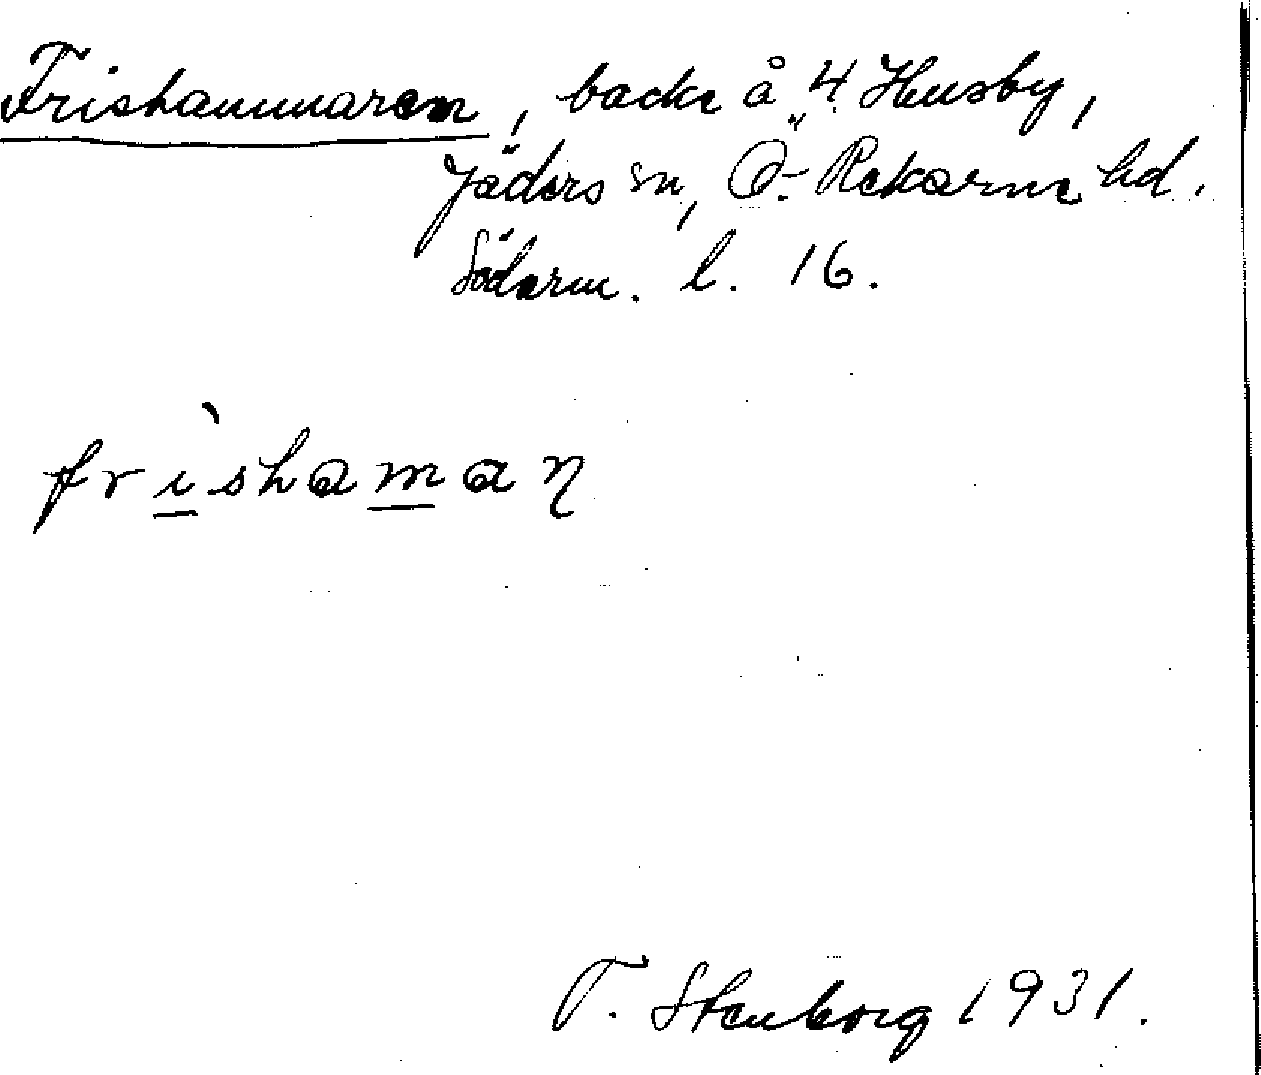 Frishammaren, backe å 4 Husby,
Jäders sn, Ö. Rekarne hd.
Söderm. l. 16.
frìshaman
T. Stenborg 1931.